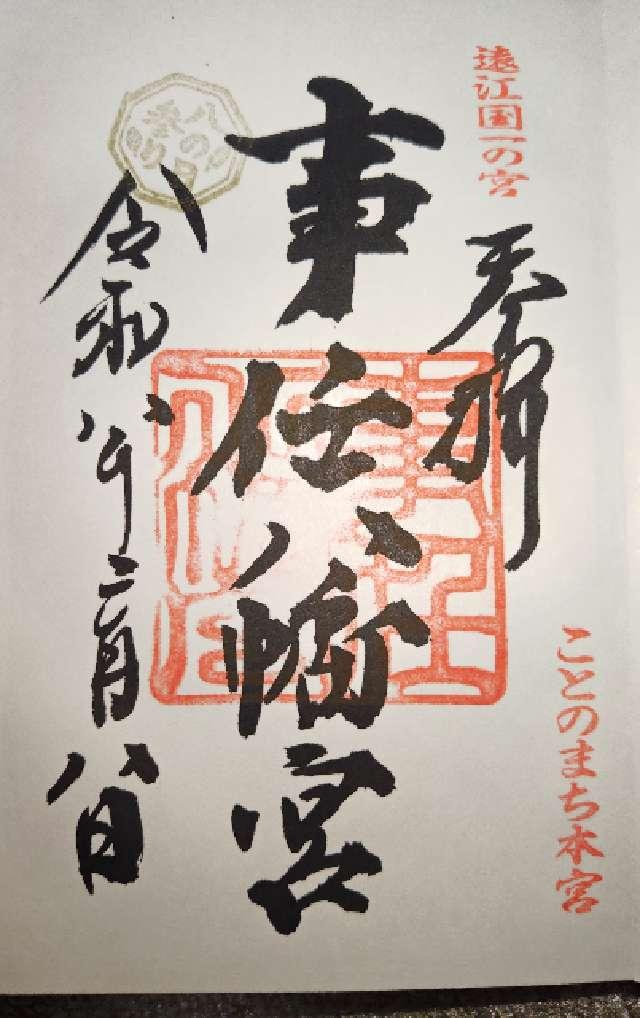 遠江国一の宮
奉拝
ことのまち本宮
事任八幡宮
八の日参り
令和八年二月八日